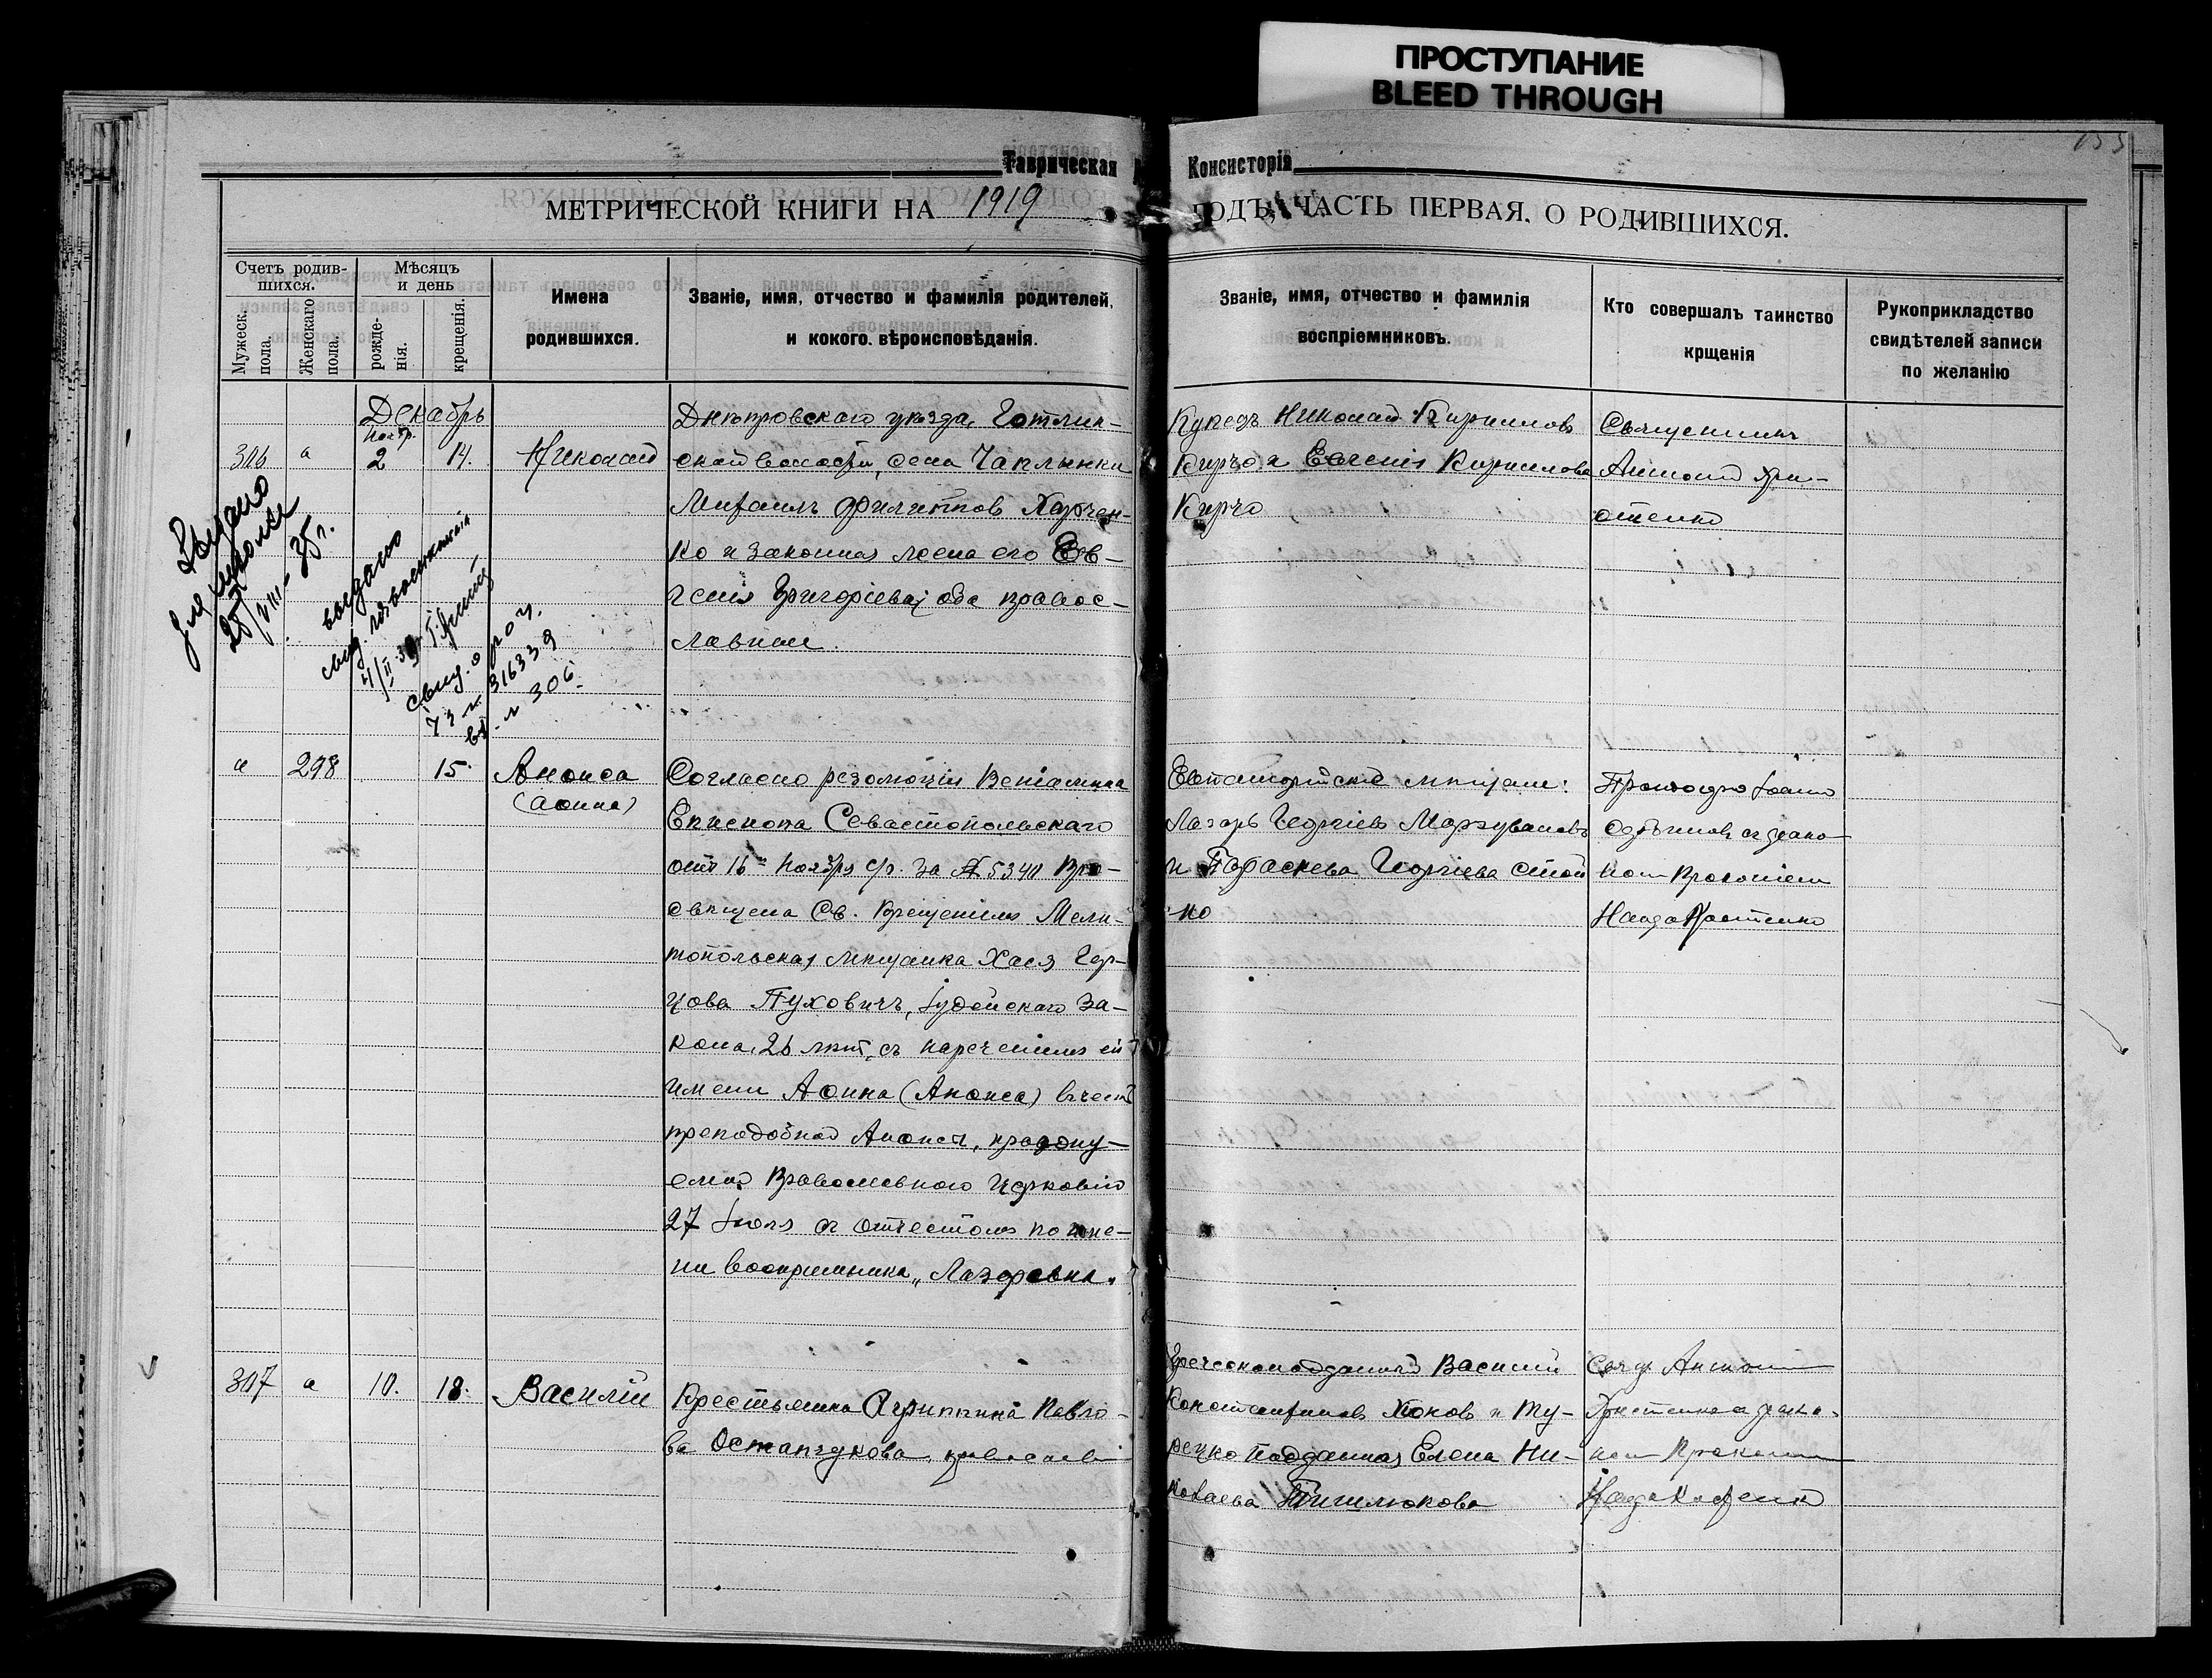 ПРОСТУПАНИЕ
BLEED THROUGH
Таврическая Консисторія
МЕТРИЧЕСКОЙ КНИГИ НА 1919 ГОДЪ, ЧАСТЬ ПЕРВАЯ, О РОДИВШИХСЯ.
Счетъ родив-
шихся.
Мужеск. пола.
Женскаго пола.
Мѣсяцъ
и день
рожде-
нія.
крещенія.
Имена
родившихся.
Званіе, имя, отчество и фамилія родителей,
и кокого вѣроисповѣданія.
Званіе, имя, отчество и фамилія
воспріемниковъ.
Кто совершалъ таинство
крщенія
Рукоприкладство
свидѣтелей записи
по желанію
Декабрь
Ноябр.
306 а 2 14. Николай
Днѣпровскаго уѣзда,
ской волости, села Чаплынки
Михаилъ Филиппов Харчен-
ко и законная жена его Ев-
генія Григоріева, оба правос-
лавные.
Купецъ Николай Кириллов
Кирчо и Евгенія Кириллова
Кирчо
Священникъ
Антоній Хри-
стенко
Выдано
для школы
25/VIII-35 г.
выдано
свид.
4/II 39 г.
свид. о рож.
ЧЗ № 316339
вз. № 306.
а 298 15. Анѳиса
(Аѳина)
Согласно резолюціи Веніамина
Епископа Севастопольскаго
отъ 16 Ноября с/г. за № 5340 Про-
свѣщена Св. Крещеніемъ Мели-
топольская мѣщанка Хася Гер-
цова Пуховичъ, Іудейскаго За-
кона, 26 лѣтъ, съ нареченіемъ ей
имени Аѳина (Анѳиса) въ честь
преподобной Анѳисы, праздну-
емой Православною Церковію
27 Іюля съ отчествомъ по име-
ни воспріемника „Лазаревна.
Евпаторійскіе мѣщане:
Лазарь Георгіевъ Марзувановъ
и Параскева Георгіева Стой
-но
Протоіерей Іоаннъ
съ діако-
номъ Прокопіемъ
307 а 10. 18. Василій
Крестьянка Агриппина Павло-
ва Остапчукова, православ
Греческоподданый Василій
Константинов и Ту-
рецко подданная Елена Ни-
колаева
Свящ Антоній
Христенко съ діако-
номъ Прокопіем